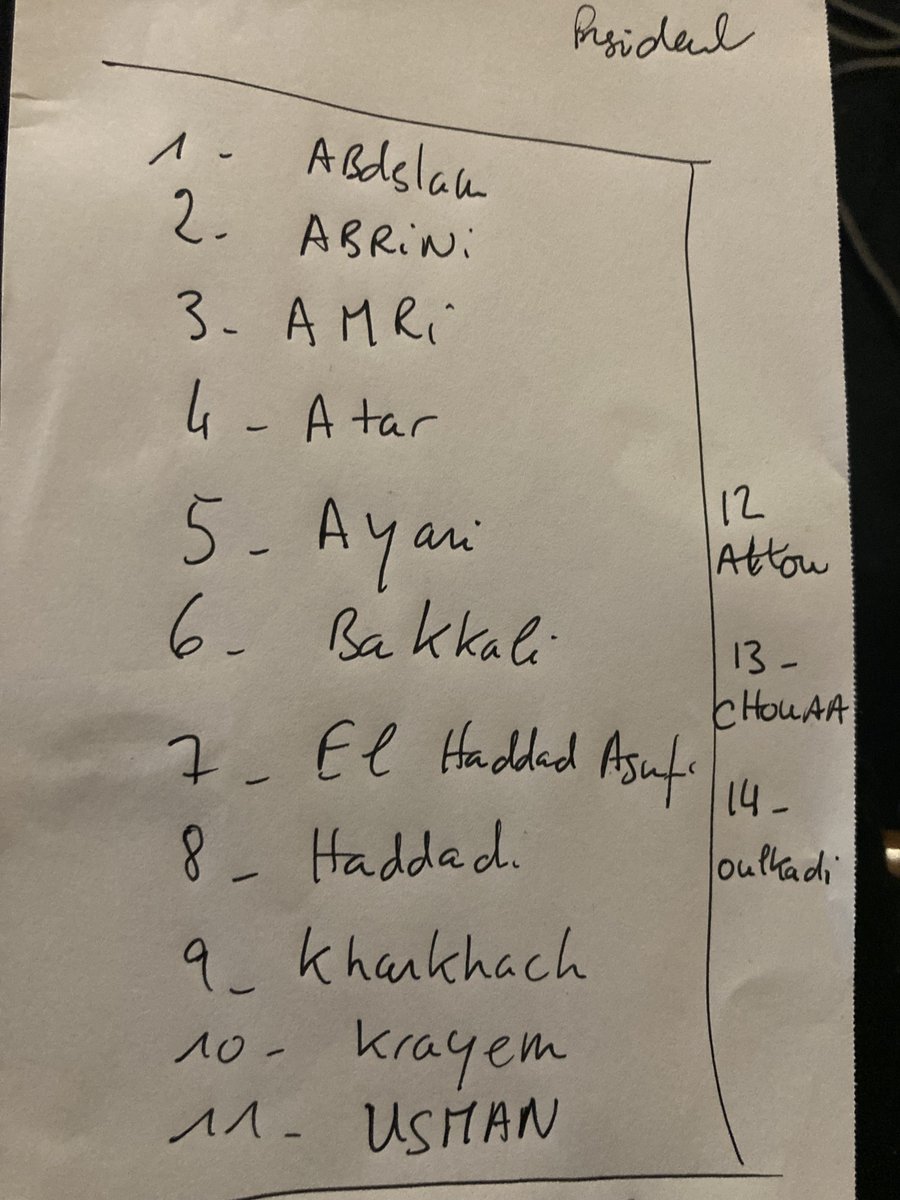 Président
1 - ABdslam
2 - ABRiNi
3 - AMRi
4 - Atar
5 - Ayari
6 - Bakkali
7 - El Haddad Asufi
8 - Haddad.
9 - Kharkhach
10 - Krayem
11 - USMAN
12
Attou
13 -
CHOUAA
14 -
oulkadi